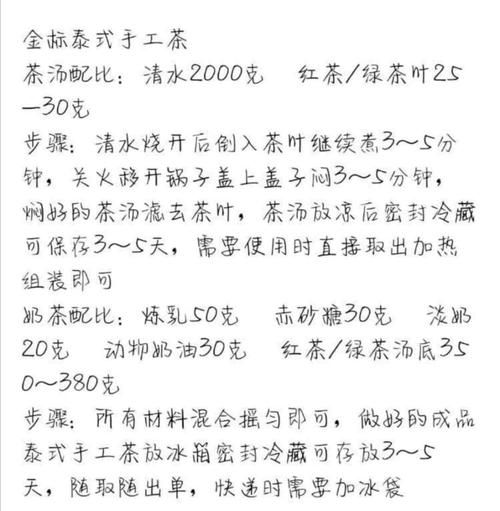 金标泰式手工茶
茶汤配比：清水2000克 红茶/绿茶叶25
—30克
步骤：清水烧开后倒入茶叶继续煮3～5分
钟，关火移开锅子盖上盖子闷3～5分钟，
焖好的茶汤滤去茶叶，茶汤放凉后密封冷藏
可保存3～5天，需要使用时直接取出加热
组装即可
奶茶配比：炼乳50克 赤砂糖30克 淡奶
20克 动物奶油30克 红茶/绿茶汤底35
0～380克
步骤：所有材料混合摇匀即可，做好的成品
泰式手工茶放冰箱密封冷藏可存放3～5
天，随取随出单，快递时需要加冰袋